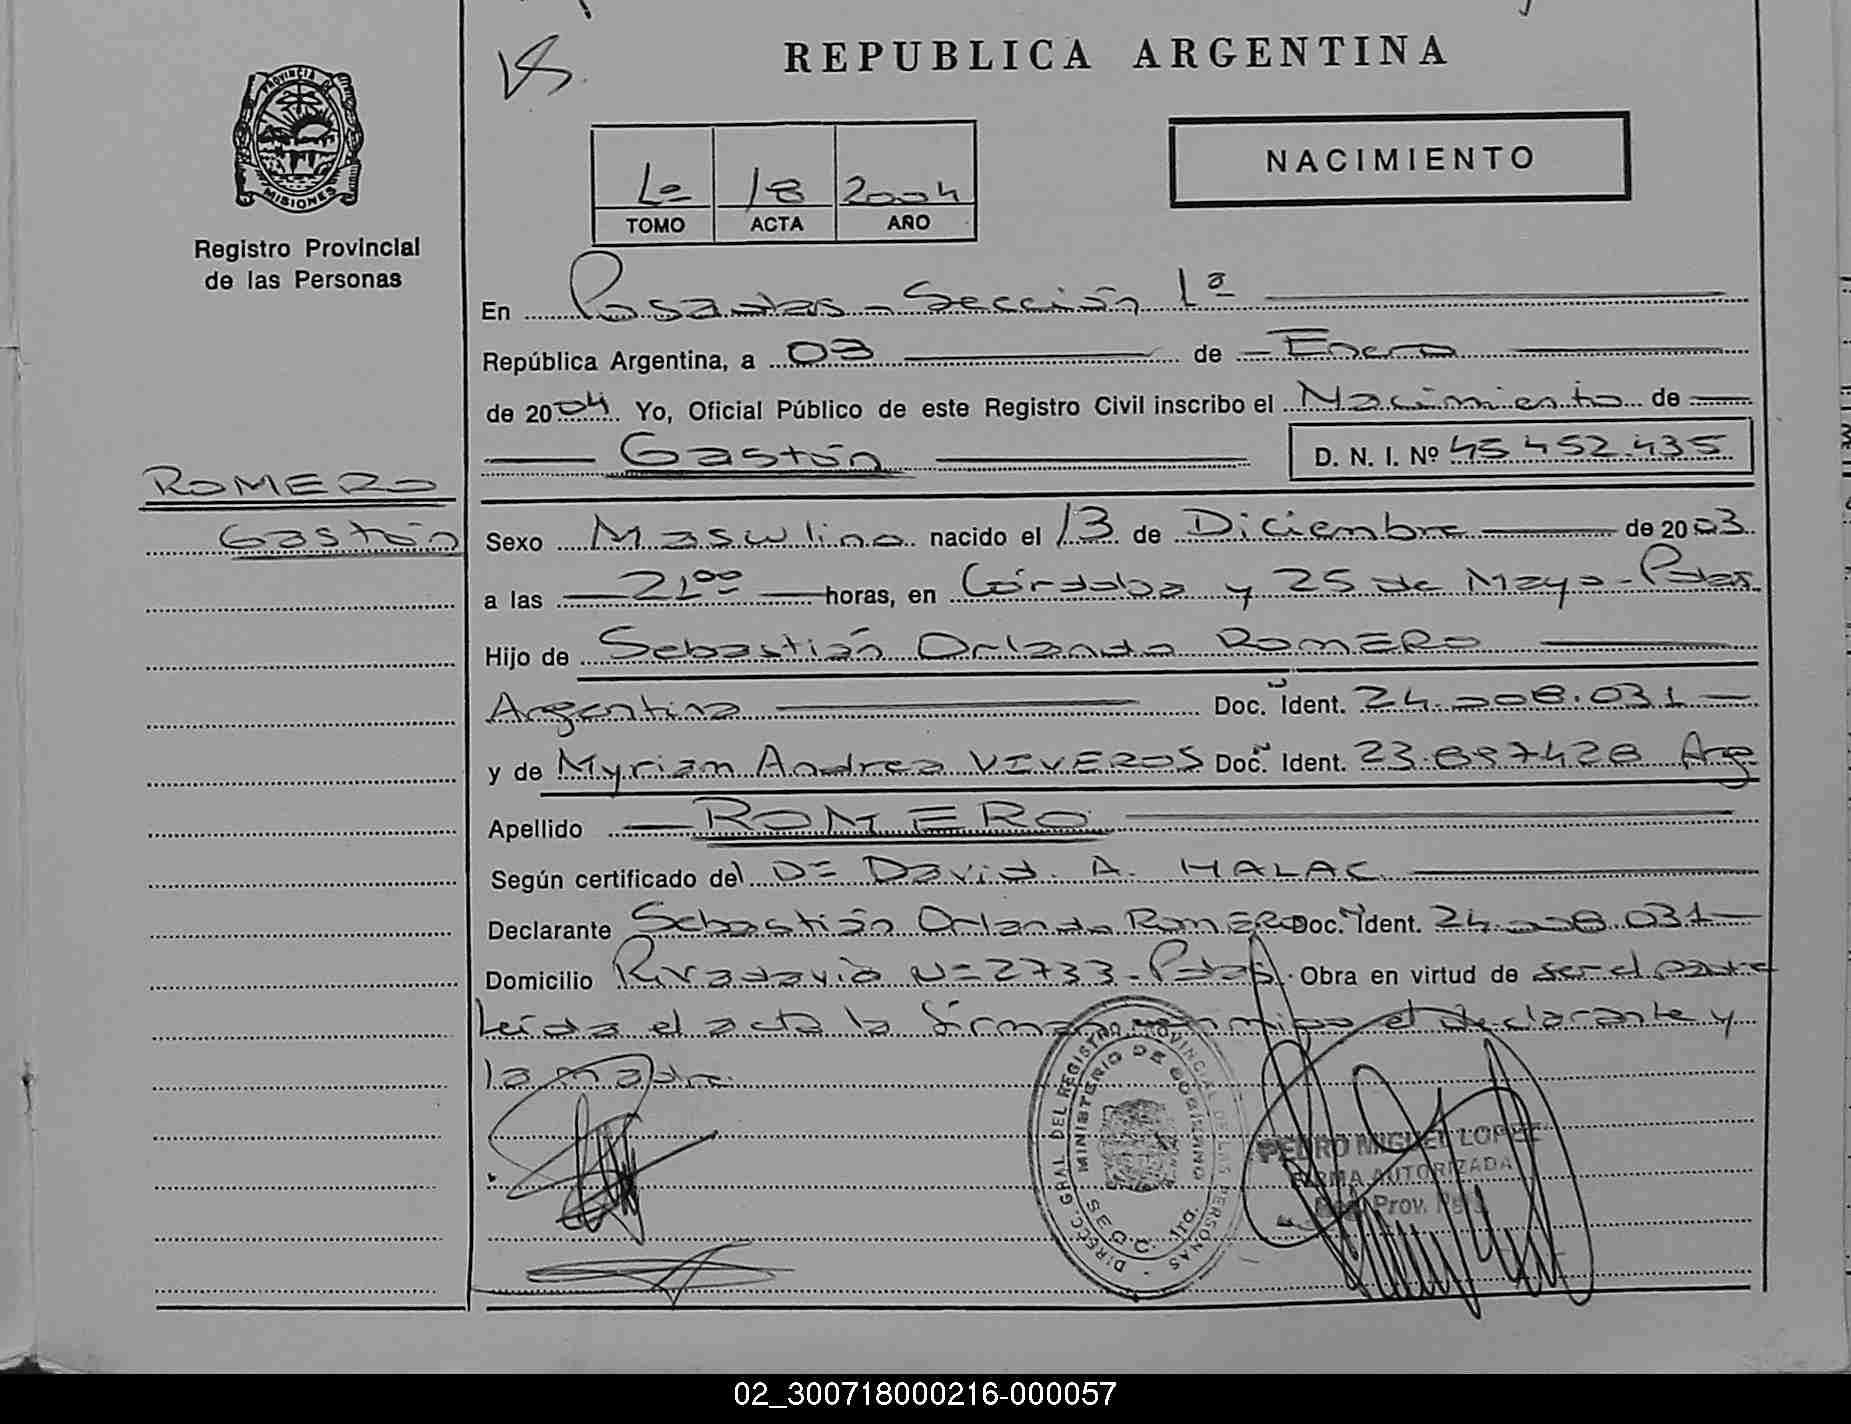 REPUBLICA ARGENTINA
PROVINCIA DE MISIONES
NACIMIENTO
1º 18 2004
TOMO ACTA AÑO
Registro Provincial
de las Personas
En Posadas - Sección 1ª
República Argentina, a 03 de Enero
de 2004 Yo, Oficial Público de este Registro Civil inscribo el Nacimiento de
Gastón D. N. I. Nº 45 452.435
ROMERO
Gastón
Sexo Masculino nacido el 13 de Diciembre de 2003
a las 21⁰⁰ horas, en Córdoba y 25 de Mayo - Pdas.
Hijo de Sebastián Orlando ROMERO
Argentina Doc. Ident. 24.008.031
y de Myriam Andrea VIVEROS Doc. Ident. 23.897428 Arg
Apellido ROMERO
Según certificado del Dr David A. MALAC
Declarante Sebastián Orlando ROMERO Doc. Ident. 24.008.031
Domicilio Rivadavia Nº 2733 - Pdas. Obra en virtud de ser el padre
Leída el acta la firman conmigo el declarante y
la madre.
DIRECC. GRAL. DEL REGISTRO PROVINCIAL DE LAS PERSONAS
MINISTERIO DE GOBIERNO
SECC. 1ra.
PEDRO MIGUEL LOPEZ
FIRMA AUTORIZADA
Reg. Prov. Pers.
02_300718000216-000057